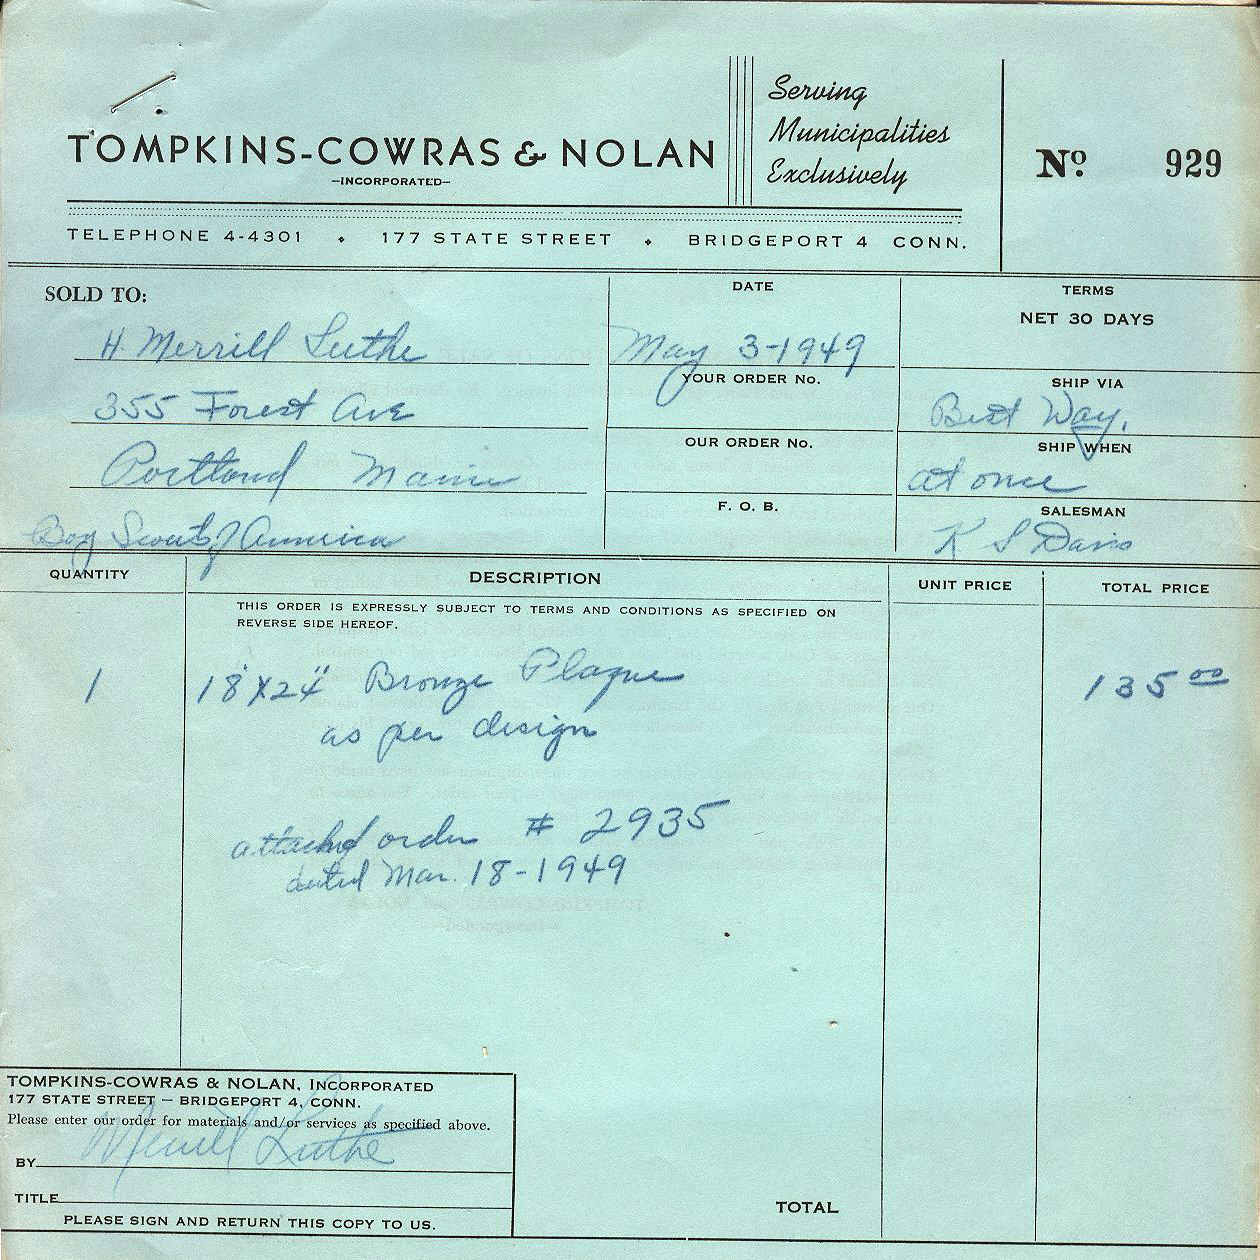 TOMPKINS-COWRAS & NOLAN
—INCORPORATED—
Serving
Municipalities
Exclusively
No. 929
TELEPHONE 4-4301 • 177 STATE STREET • BRIDGEPORT 4 CONN.
SOLD TO:
H. Merrill Luthe
355 Forest Ave
Portland Maine
Boy Scouts of America
DATE
May 3-1949
YOUR ORDER No.
OUR ORDER No.
F. O. B.
TERMS
NET 30 DAYS
SHIP VIA
Best Way.
SHIP WHEN
at once
SALESMAN
K S Davis
QUANTITY
DESCRIPTION
UNIT PRICE
TOTAL PRICE
THIS ORDER IS EXPRESSLY SUBJECT TO TERMS AND CONDITIONS AS SPECIFIED ON
REVERSE SIDE HEREOF.
1 18"X24" Bronze Plaque 135 00
as per design
attached order # 2935
dated Mar. 18-1949
TOMPKINS-COWRAS & NOLAN, INCORPORATED
177 STATE STREET — BRIDGEPORT 4, CONN.
Please enter our order for materials and/or services as specified above.
BY Merrill Luthe
TITLE
PLEASE SIGN AND RETURN THIS COPY TO US.
TOTAL